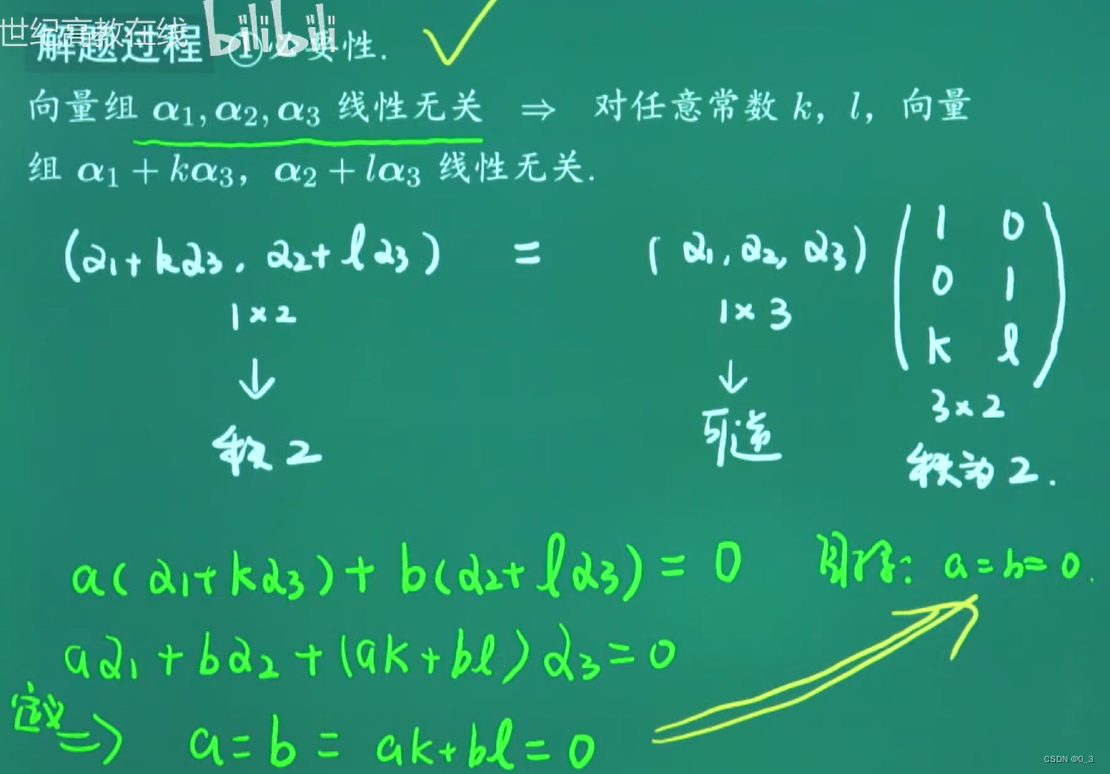 世纪高教在线 bilibili
解题过程 ①必要性.
向量组 α₁, α₂, α₃ 线性无关 ⇒ 对任意常数 k, l, 向量
组 α₁ + kα₃, α₂ + lα₃ 线性无关.
(α₁+kα₃, α₂+lα₃) = (α₁, α₂, α₃) ( 1 0
0 1
k l )
1×2 1×3 3×2
↓ ↓
秩2 可逆 秩为2.
a(α₁+kα₃)+b(α₂+lα₃)=0 目标: a=b=0.
aα₁+bα₂+(ak+bl)α₃=0
定义 ⇒ a=b=ak+bl=0
CSDN @0_3